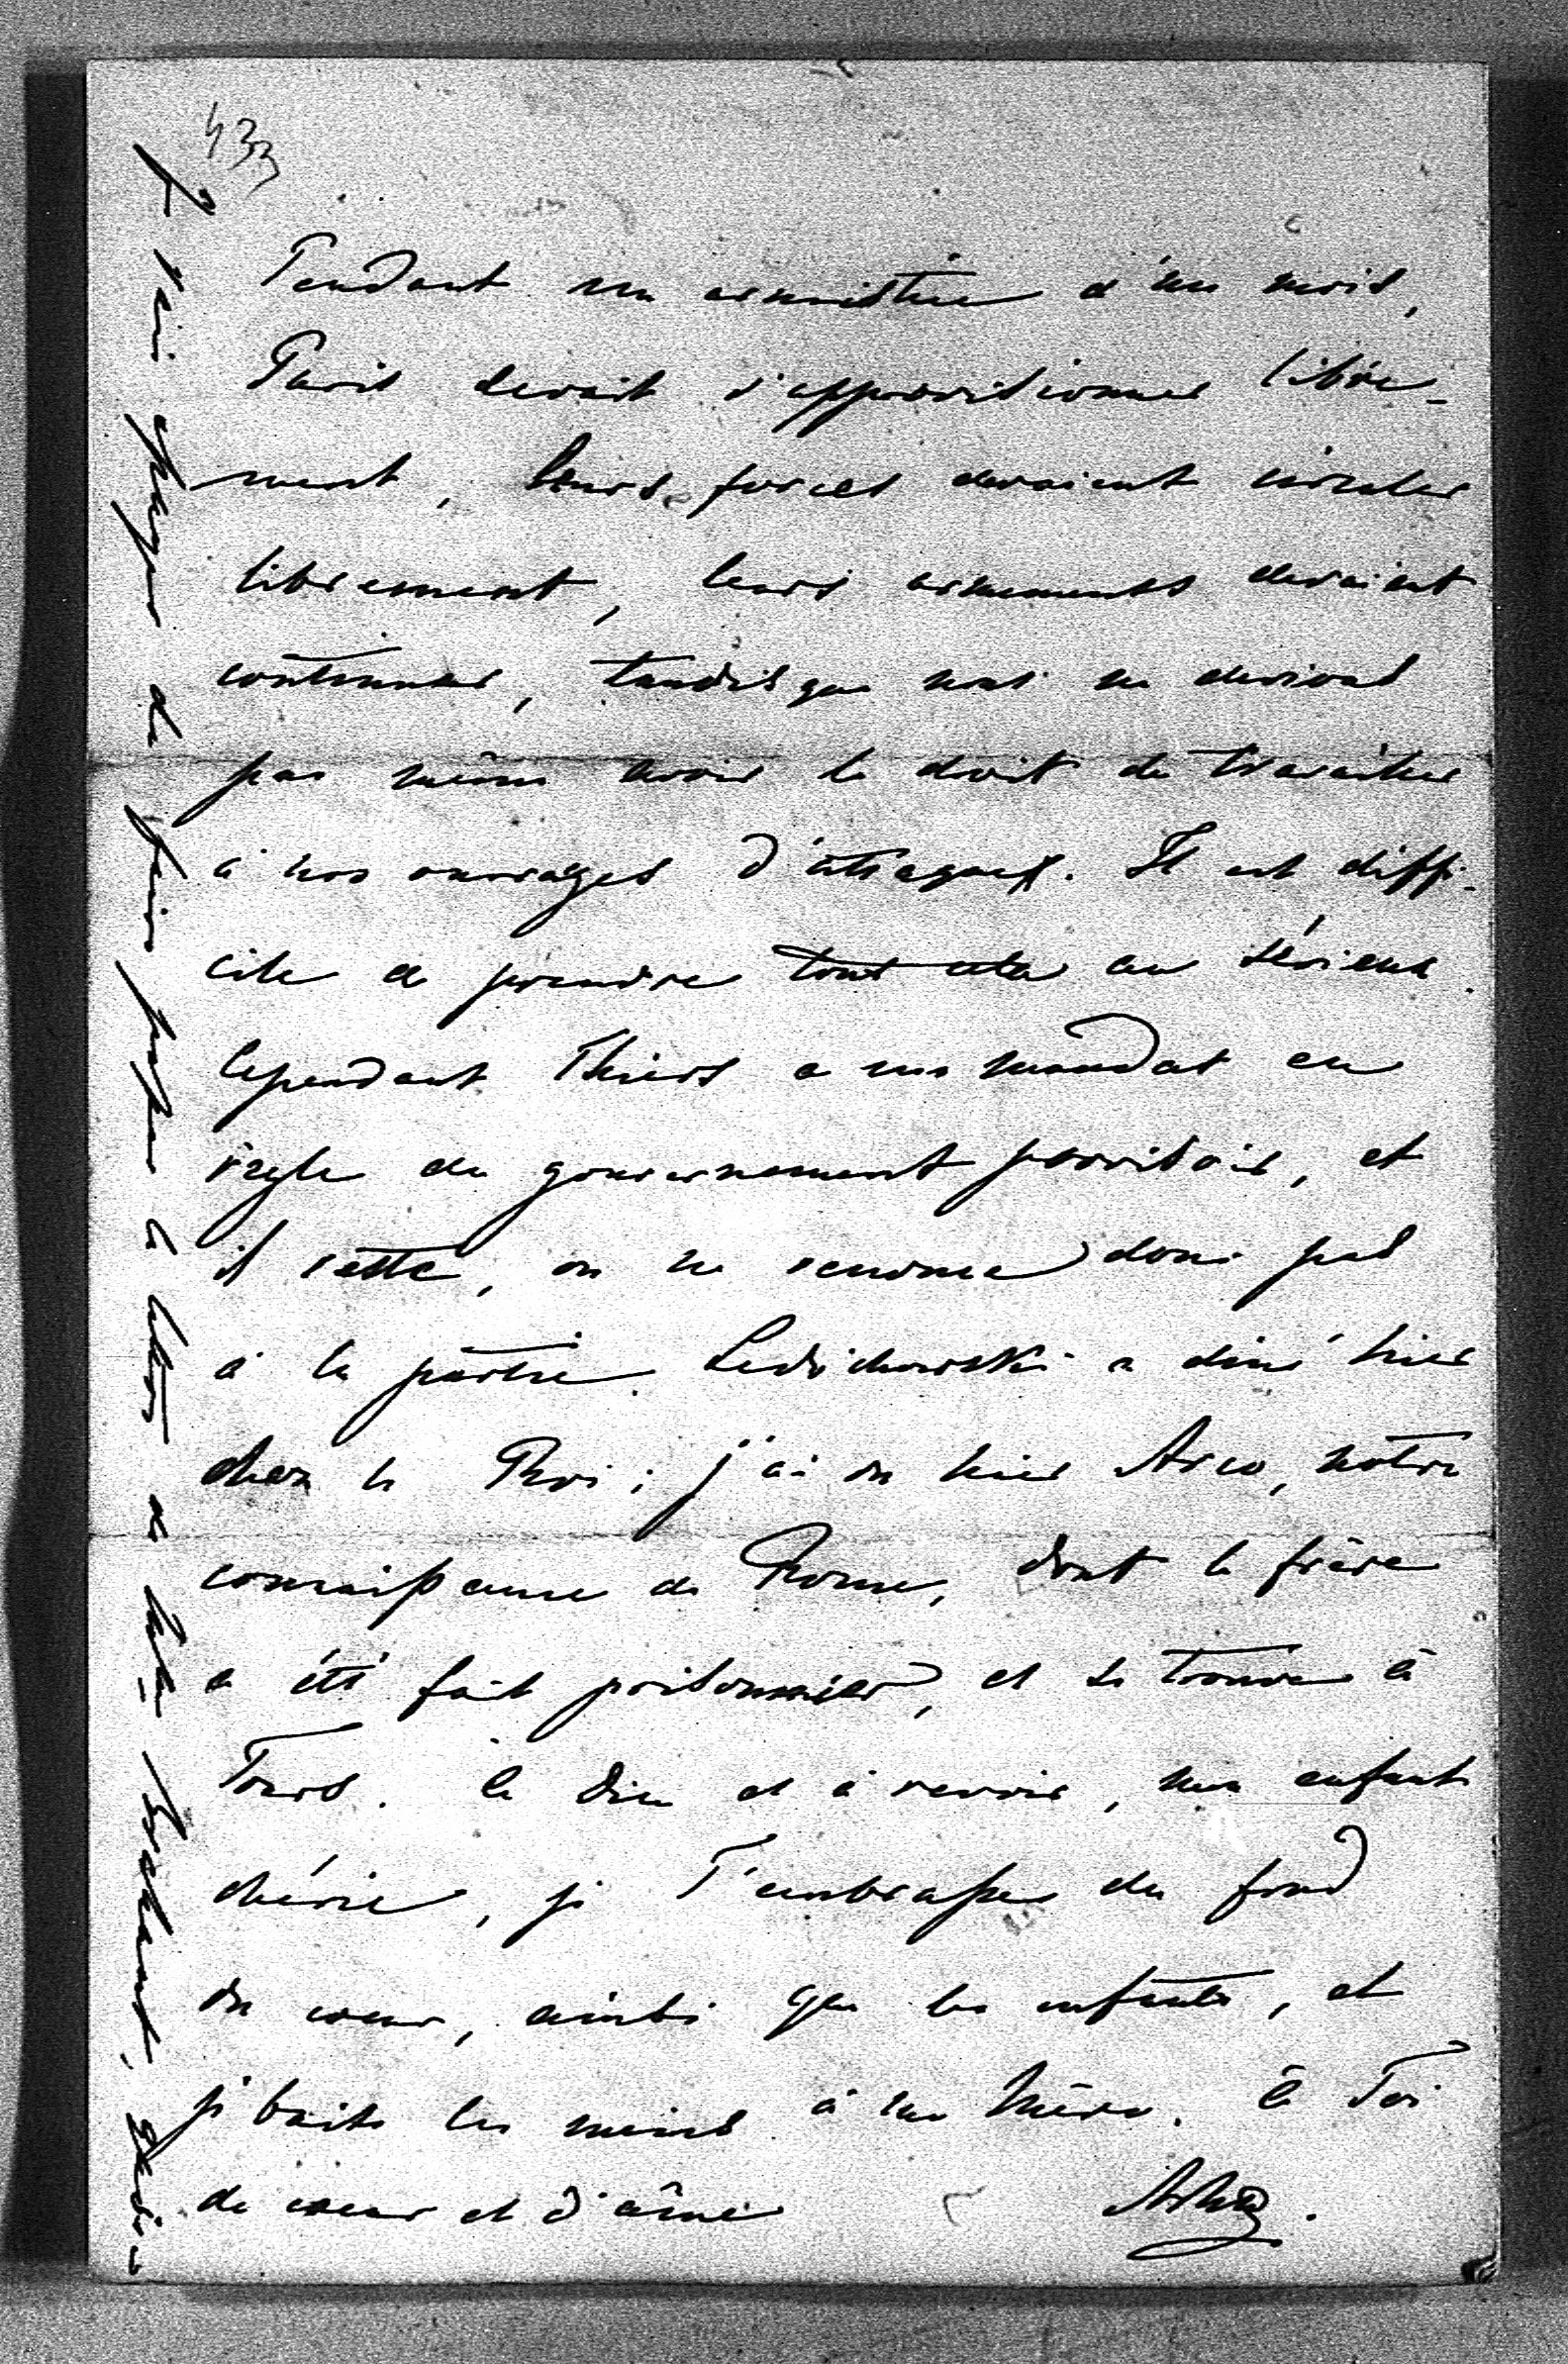 433
Pendant un armistice d'un mois,
Paris devait s'approvisionner libre-
ment, leurs forces devaient circuler
librement, leurs armements devaient
continuer, tandisque nous ne devions
pas même avoir le droit de travailler
à nos ouvrages d'attaques. Il est diffi-
cile de prendre tout cela au sérieux.
Cependant Thiers a un mandat en
règle du gouvernement provisoire, et
il reste, on ne renonce donc pas
à la partie. Ledichowski a diné hier
chez le Roi; j'ai vu hier Arco, notre
connaissance de Rome, dont le frère
a été fait prisonnier, et se trouve à
Tours. à Dieu et à revoir, mon enfant
chérie, je T'embrasse du fond
du cœur, ainsi que les enfants, et
je baise les mains à ma Mère. à Toi
de cœur et d'âme
de faire passer la lettre à